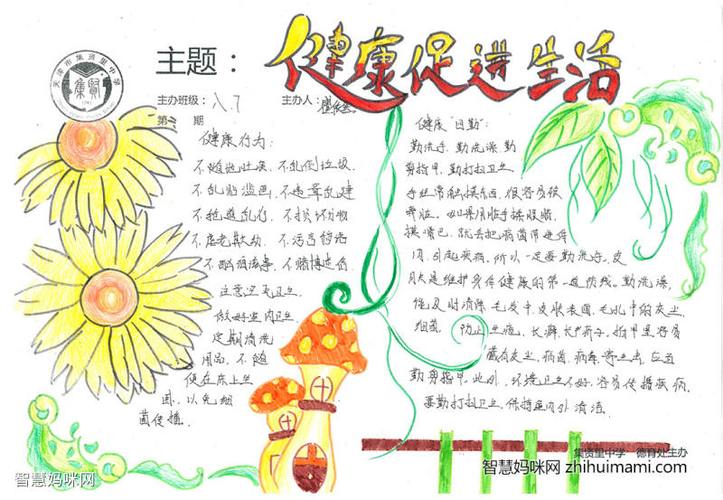 主题：
健康促进生活
天津市集贤里中学
集贤
主办班级：八.7
主办人：
第 期
健康行为：
不随地吐痰 不乱倒垃圾
不乱贴滥画 不违章乱建
不抢道乱行 不损坏公物
不污言秽语
不酗酒滋事 不赌博
注意
做好室内卫生
定期清洗
用品，不随
便在床上坐
卧，以免细
菌传播。
健康“四勤”：
勤洗手、勤洗澡、勤
剪指甲、勤打扫卫生
手经常触摸东西，很容易很
脏。如果用脏手揉眼睛，
摸嘴巴，就会把病菌带进体
内，引起疾病，所以一定要勤洗手，皮
肤是维护身体健康的第一道防线。勤洗澡，
能及时清除毛发中、皮肤表面、毛孔中的灰尘
细菌 防止生疮，长癣，长疥子，指甲里容易
藏有灰尘，病菌，病毒，寄生虫，应当
勤剪指甲。此外，环境卫生不好容易传播疾病，
要勤打扫卫生，保持室内外清洁。
集贤里中学 德育处主办
智慧妈咪网 zhihuimami.com
智慧妈咪网